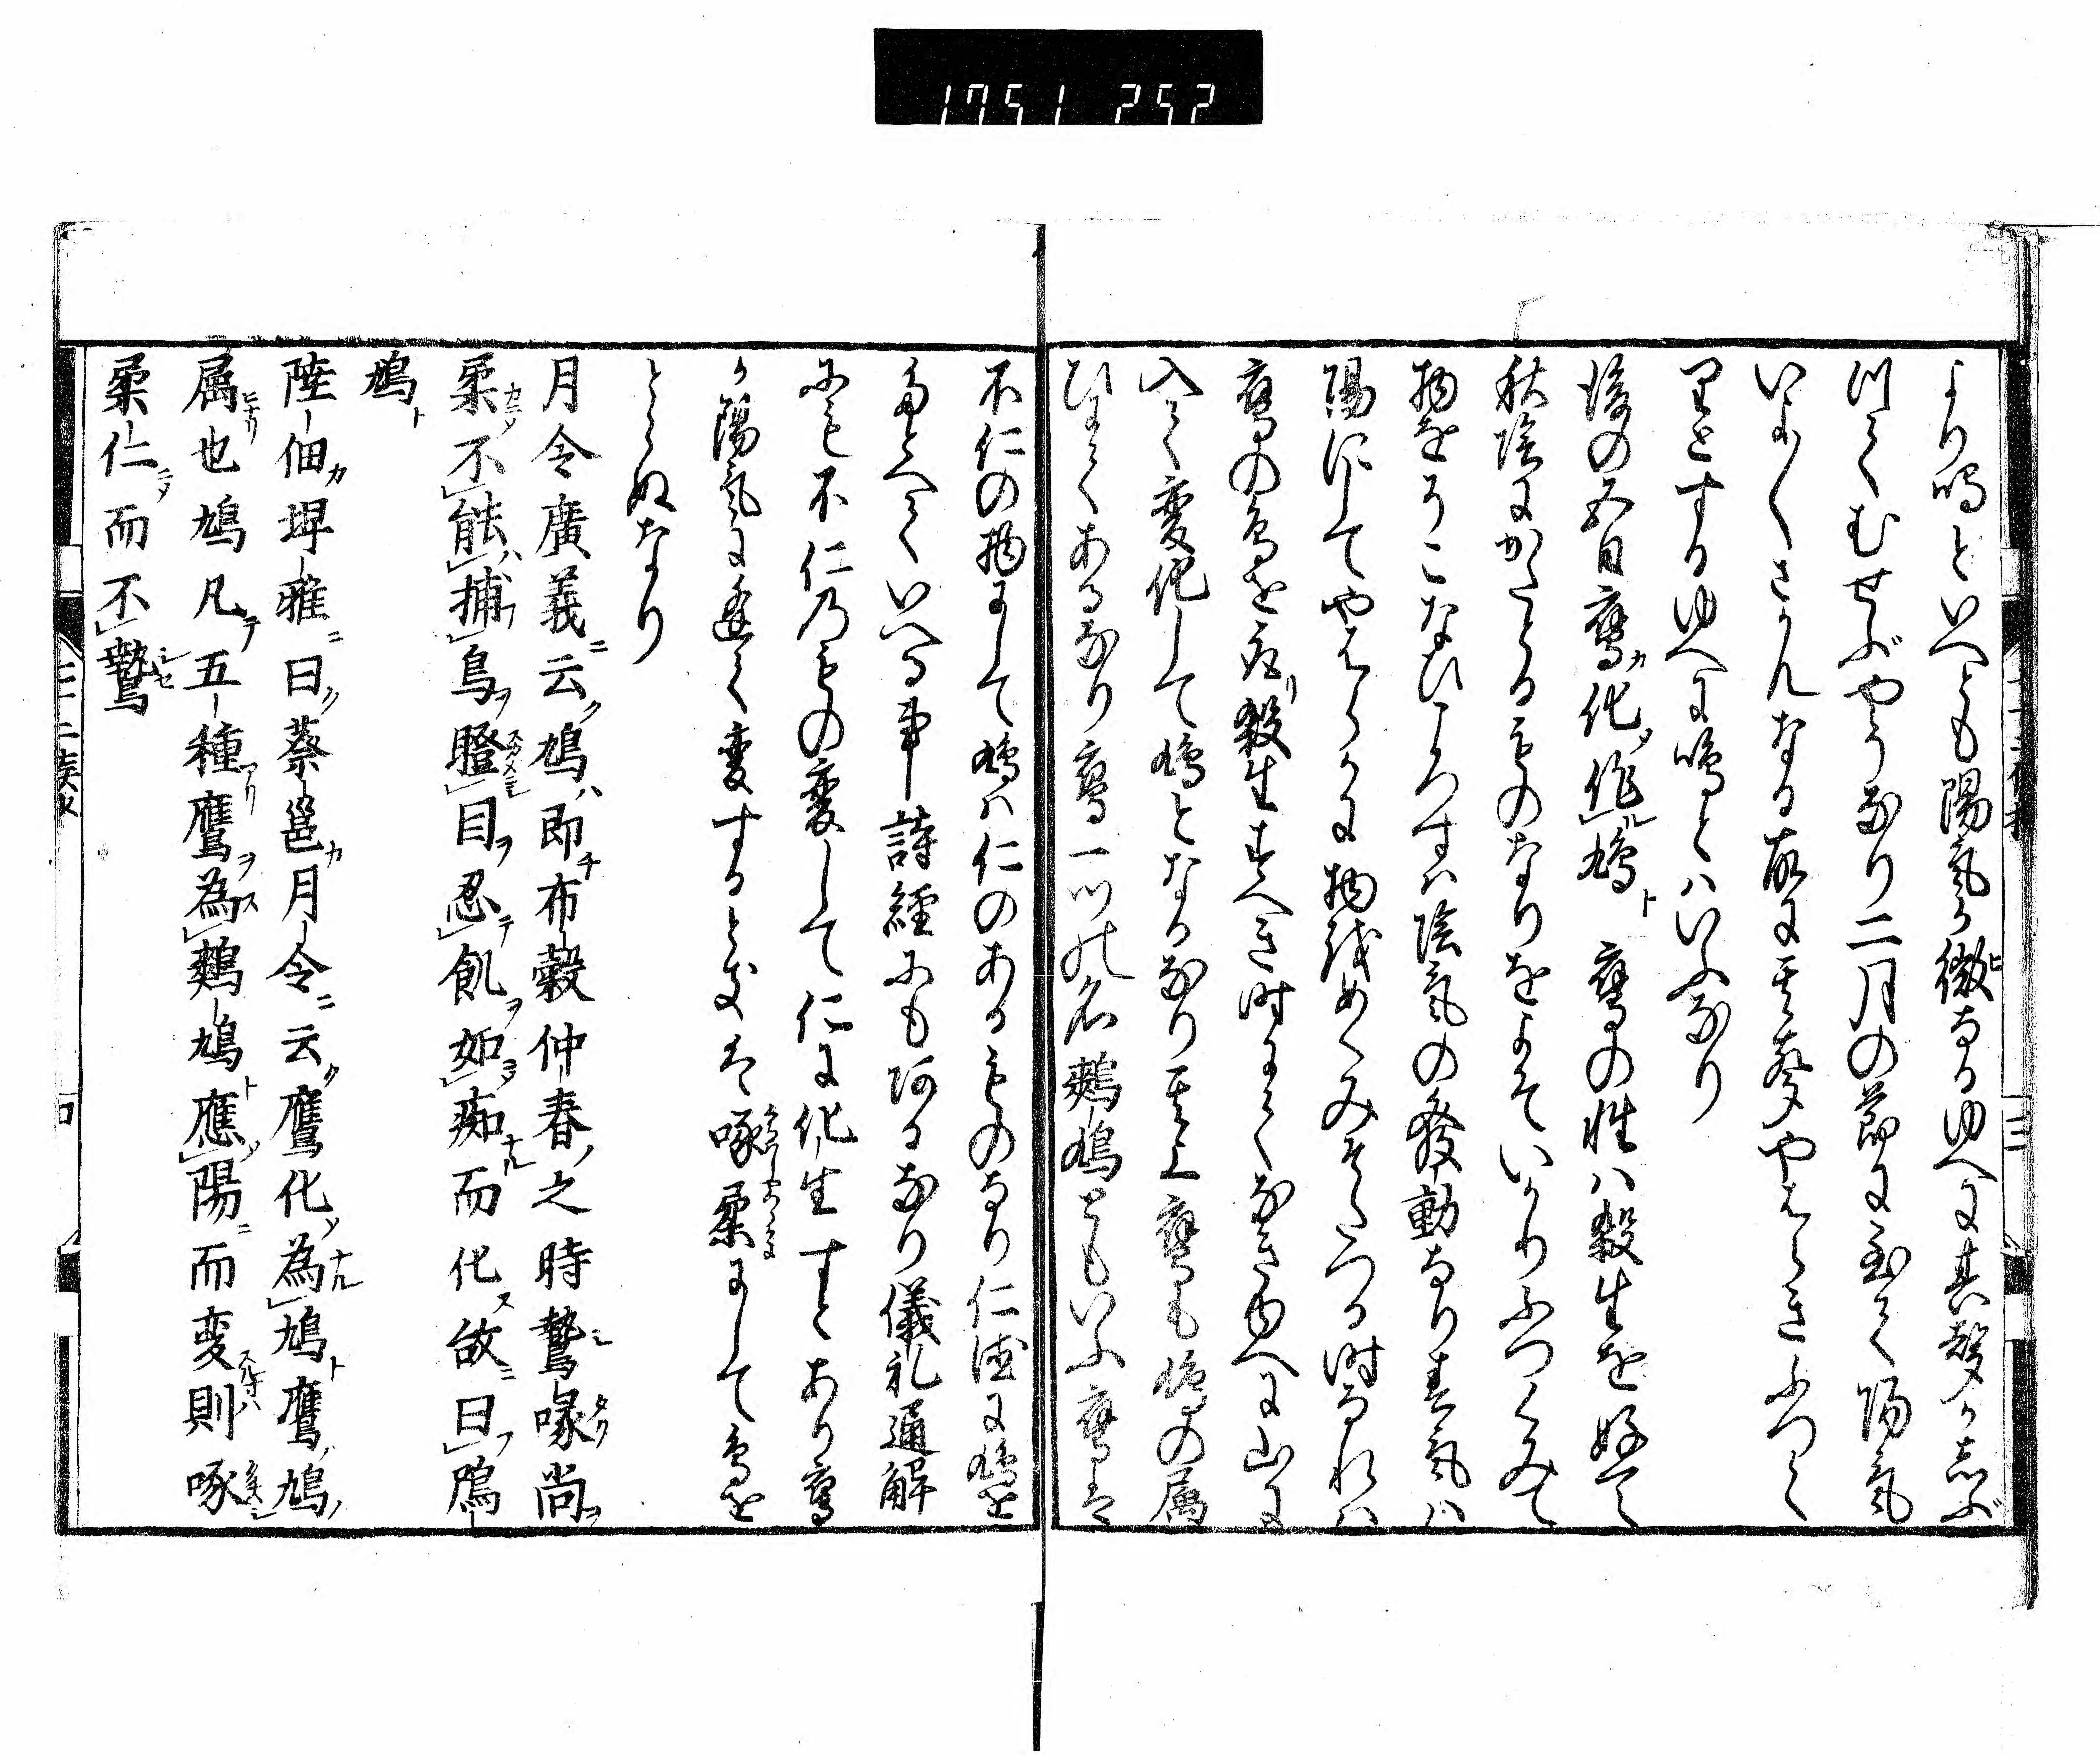 1751 252
より鳴といへとも陽氣か微なるゆへに其聲か志ぶ
りてむせぶやうなり二月の節に至て陽氣
いよ〱さかんなる故に其聲やはらきふつく
りとするゆへに鳴とはいふなり
後の五日鷹化作鳩 鷹の性は殺生を好て
秋陰にかたとるものなりをよそいかりふつくみて
物をそこなひころすは陰氣の發動なり春氣は
陽にしてやはらかに物はめくみそたつる時なれは
鷹の鳥を取殺生すへき時にてなきゆへに山に
入て変化して鳩となるなり其上鷹も鳩の属
ひにてあるなり鷹一つの名鷞鳩ともいふ鷹は
不仁の物にして鳩は仁のあるものなり仁徳に鳩を
たとへていへる事詩經にも阿るなり儀礼通解
にも不仁乃ものの変して仁に化生すとあり鷹
か陽氣に逢て変するときは啄柔にして鳥を
とらぬなり
月令廣義云鳩即布穀仲春之時鷙喙尚
柔不能捕鳥瞪目忍飢如痴而化故曰鳲
鳩
陸佃埤雅曰蔡邕月令云鷹化為鳩鷹鳩
属也鳩凡五種鷹為鷞鳩應陽而変則啄
柔仁而不鷙